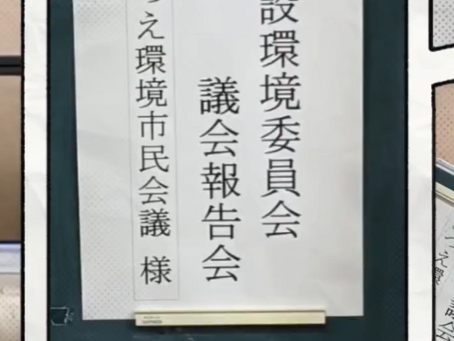 設環境委員会
議会報告会
つえ環境市民会議 様